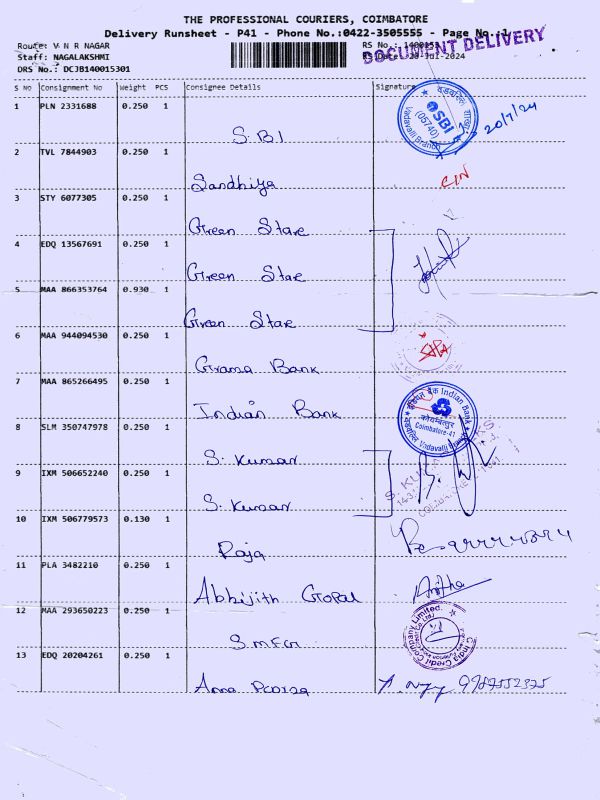 THE PROFESSIONAL COURIERS, COIMBATORE
Delivery Runsheet - P41 - Phone No.:0422-3505555 - Page No.:1
DOCUMENT DELIVERY
Route: V N R NAGAR
Staff: NAGALAKSHMI
RS Date: 20-Jul-2024
DRS No.: DCJB140015301
S No Consignment No Weight PCS Consignee Details Signature
1 PLN 2331688 0.250 1 S.B.I
SBI (05740) Vadavalli Branch
20/7/24
2 TVL 7844903 0.250 1 Sandhiya
3 STY 6077305 0.250 1 Green Star
4 EDQ 13567691 0.250 1 Green Star
5 MAA 866353764 0.930 1 Green Star
6 MAA 944094530 0.250 1 Grama Bank
7 MAA 865266495 0.250 1 Indian Bank
Indian Bank Coimbatore-41 Vadavalli
8 SLM 350747978 0.250 1 S. Kumar
9 IXM 506652240 0.250 1 S. Kumar
10 IXM 506779573 0.130 1 Raja
11 PLA 3482210 0.250 1 Abhijith Gopal Anitha
12 MAA 293650223 0.250 1 S.M.F.G
India Credit Company Limited.
13 EDQ 20204261 0.250 1 Anna